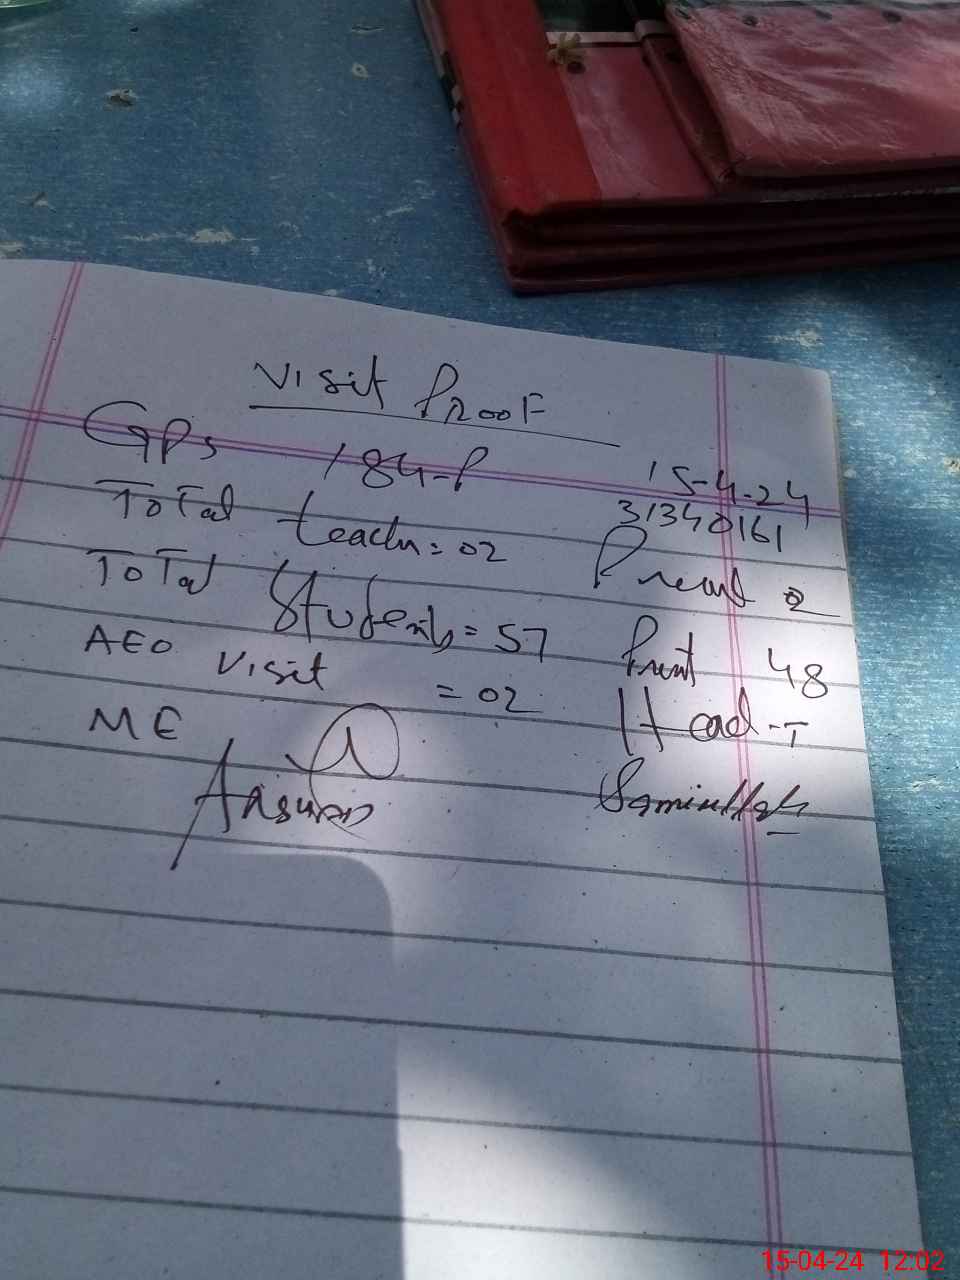 Visit Proof
GPS 184-P 15-4-24
31340161
Total teacher = 02 Present 2
Total Students = 57 Present 48
AEO Visit = 02 Head-T
ME
Samiullah
15-04-24 12:02